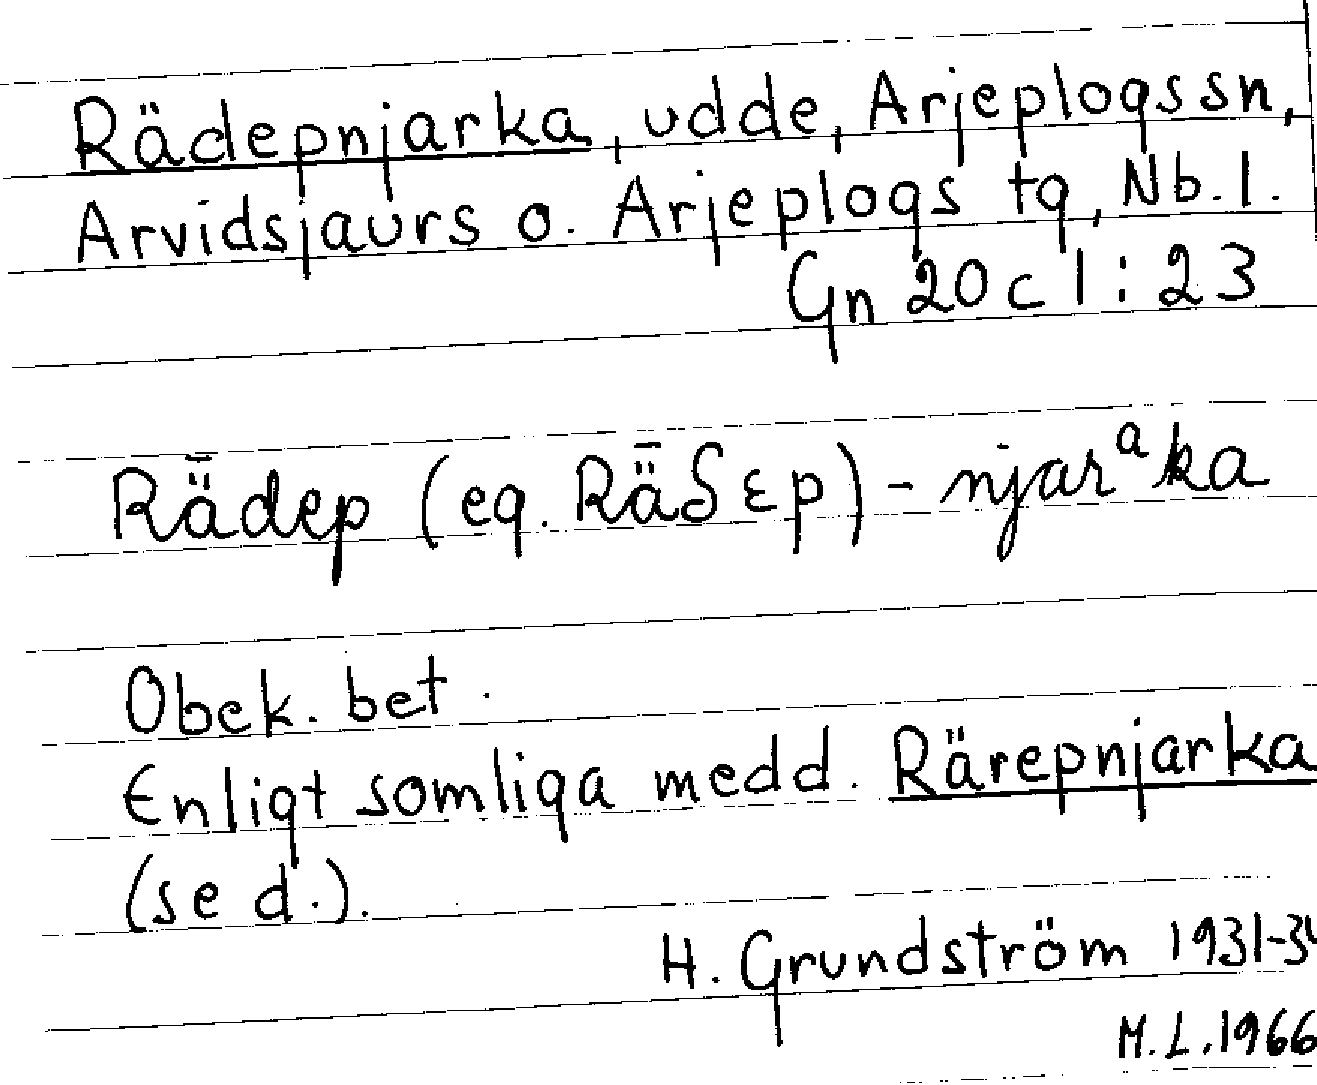 Rädepnjarka, udde, Arjeplogs sn,
Arvidsjaurs o. Arjeplogs tg, Nb. l.
Gn 20 c 1 : 23
Rǟdep (eg. Rǟδεp) - njarᵃka
Obek. bet.
Enligt somliga medd. Rärepnjarka
(se d.).
H. Grundström 1931-3
M. L. 1966